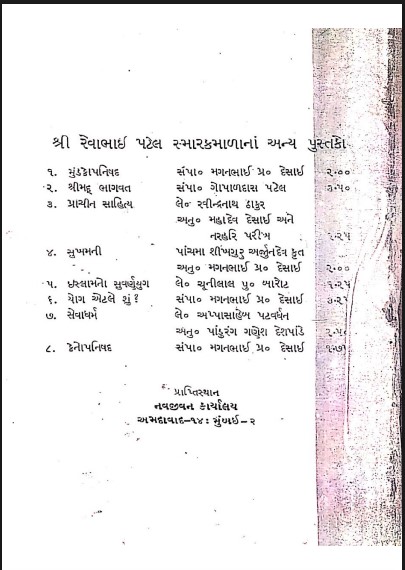 શ્રી રેવાભાઈ પટેલ સ્મારકમાળાનાં અન્ય પુસ્તકો
૧. મુંડકોપનિષદ સંપા૦ મગનભાઈ પ્ર૦ દેસાઈ ૨·૦૦
૨. શ્રીમદ્ ભાગવત સંપા૦ ગોપાળદાસ પટેલ ૩·૫૦
૩. પ્રાચીન સાહિત્ય લે૦ રવીન્દ્રનાથ ઠાકુર
અનુ૦ મહાદેવ દેસાઈ અને
નરહરિ પરીખ ૨·૨૫
૪. સુખમની પાંચમા શીખગુરુ અર્જુનદેવ કૃત
અનુ૦ મગનભાઈ પ્ર૦ દેસાઈ ૨·૦૦
૫. ઇસ્લામનો સુવર્ણયુગ લે૦ ચૂનીલાલ પુ૦ બારોટ ૧·૨૫
૬. યોગ એટલે શું? સંપા૦ મગનભાઈ પ્ર૦ દેસાઈ ૩·૨૫
૭. સેવાધર્મ લે૦ અપ્પાસાહેબ પટવર્ધન
અનુ૦ પાંડુરંગ ગણેશ દેશપાંડે ૨·૫૦
૮. કેનોપનિષદ સંપા૦ મગનભાઈ પ્ર૦ દેસાઈ ૧·૭૫
પ્રાપ્તિસ્થાન
નવજીવન કાર્યાલય
અમદાવાદ-૧૪ : મુંબઈ-૨